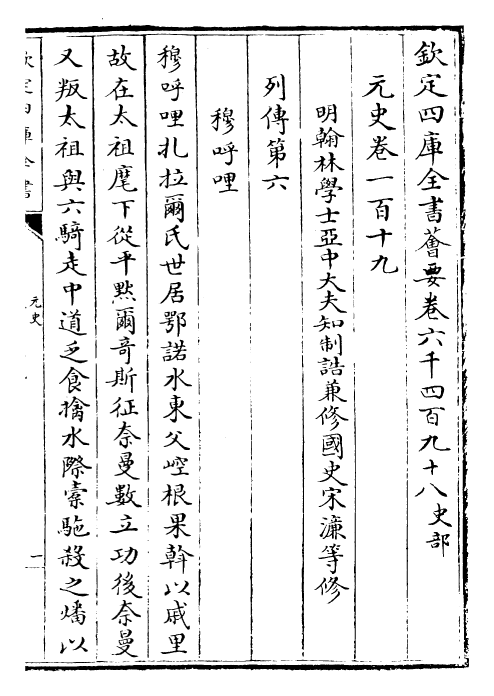 欽定四庫全書薈要卷六千四百九十八史部
元史卷一百十九
明翰林學士亞中大夫知制誥兼修國史宋濂等修
列傳第六
穆呼哩
穆呼哩扎拉爾氏世居鄂諾水東父崆根果斡以戚里
故在太祖麾下從平黙爾奇斯征奈曼數立功後奈曼
又叛太祖與六騎走中道乏食擒水際橐駞殺之燔以
欽定四庫全書
元史
一